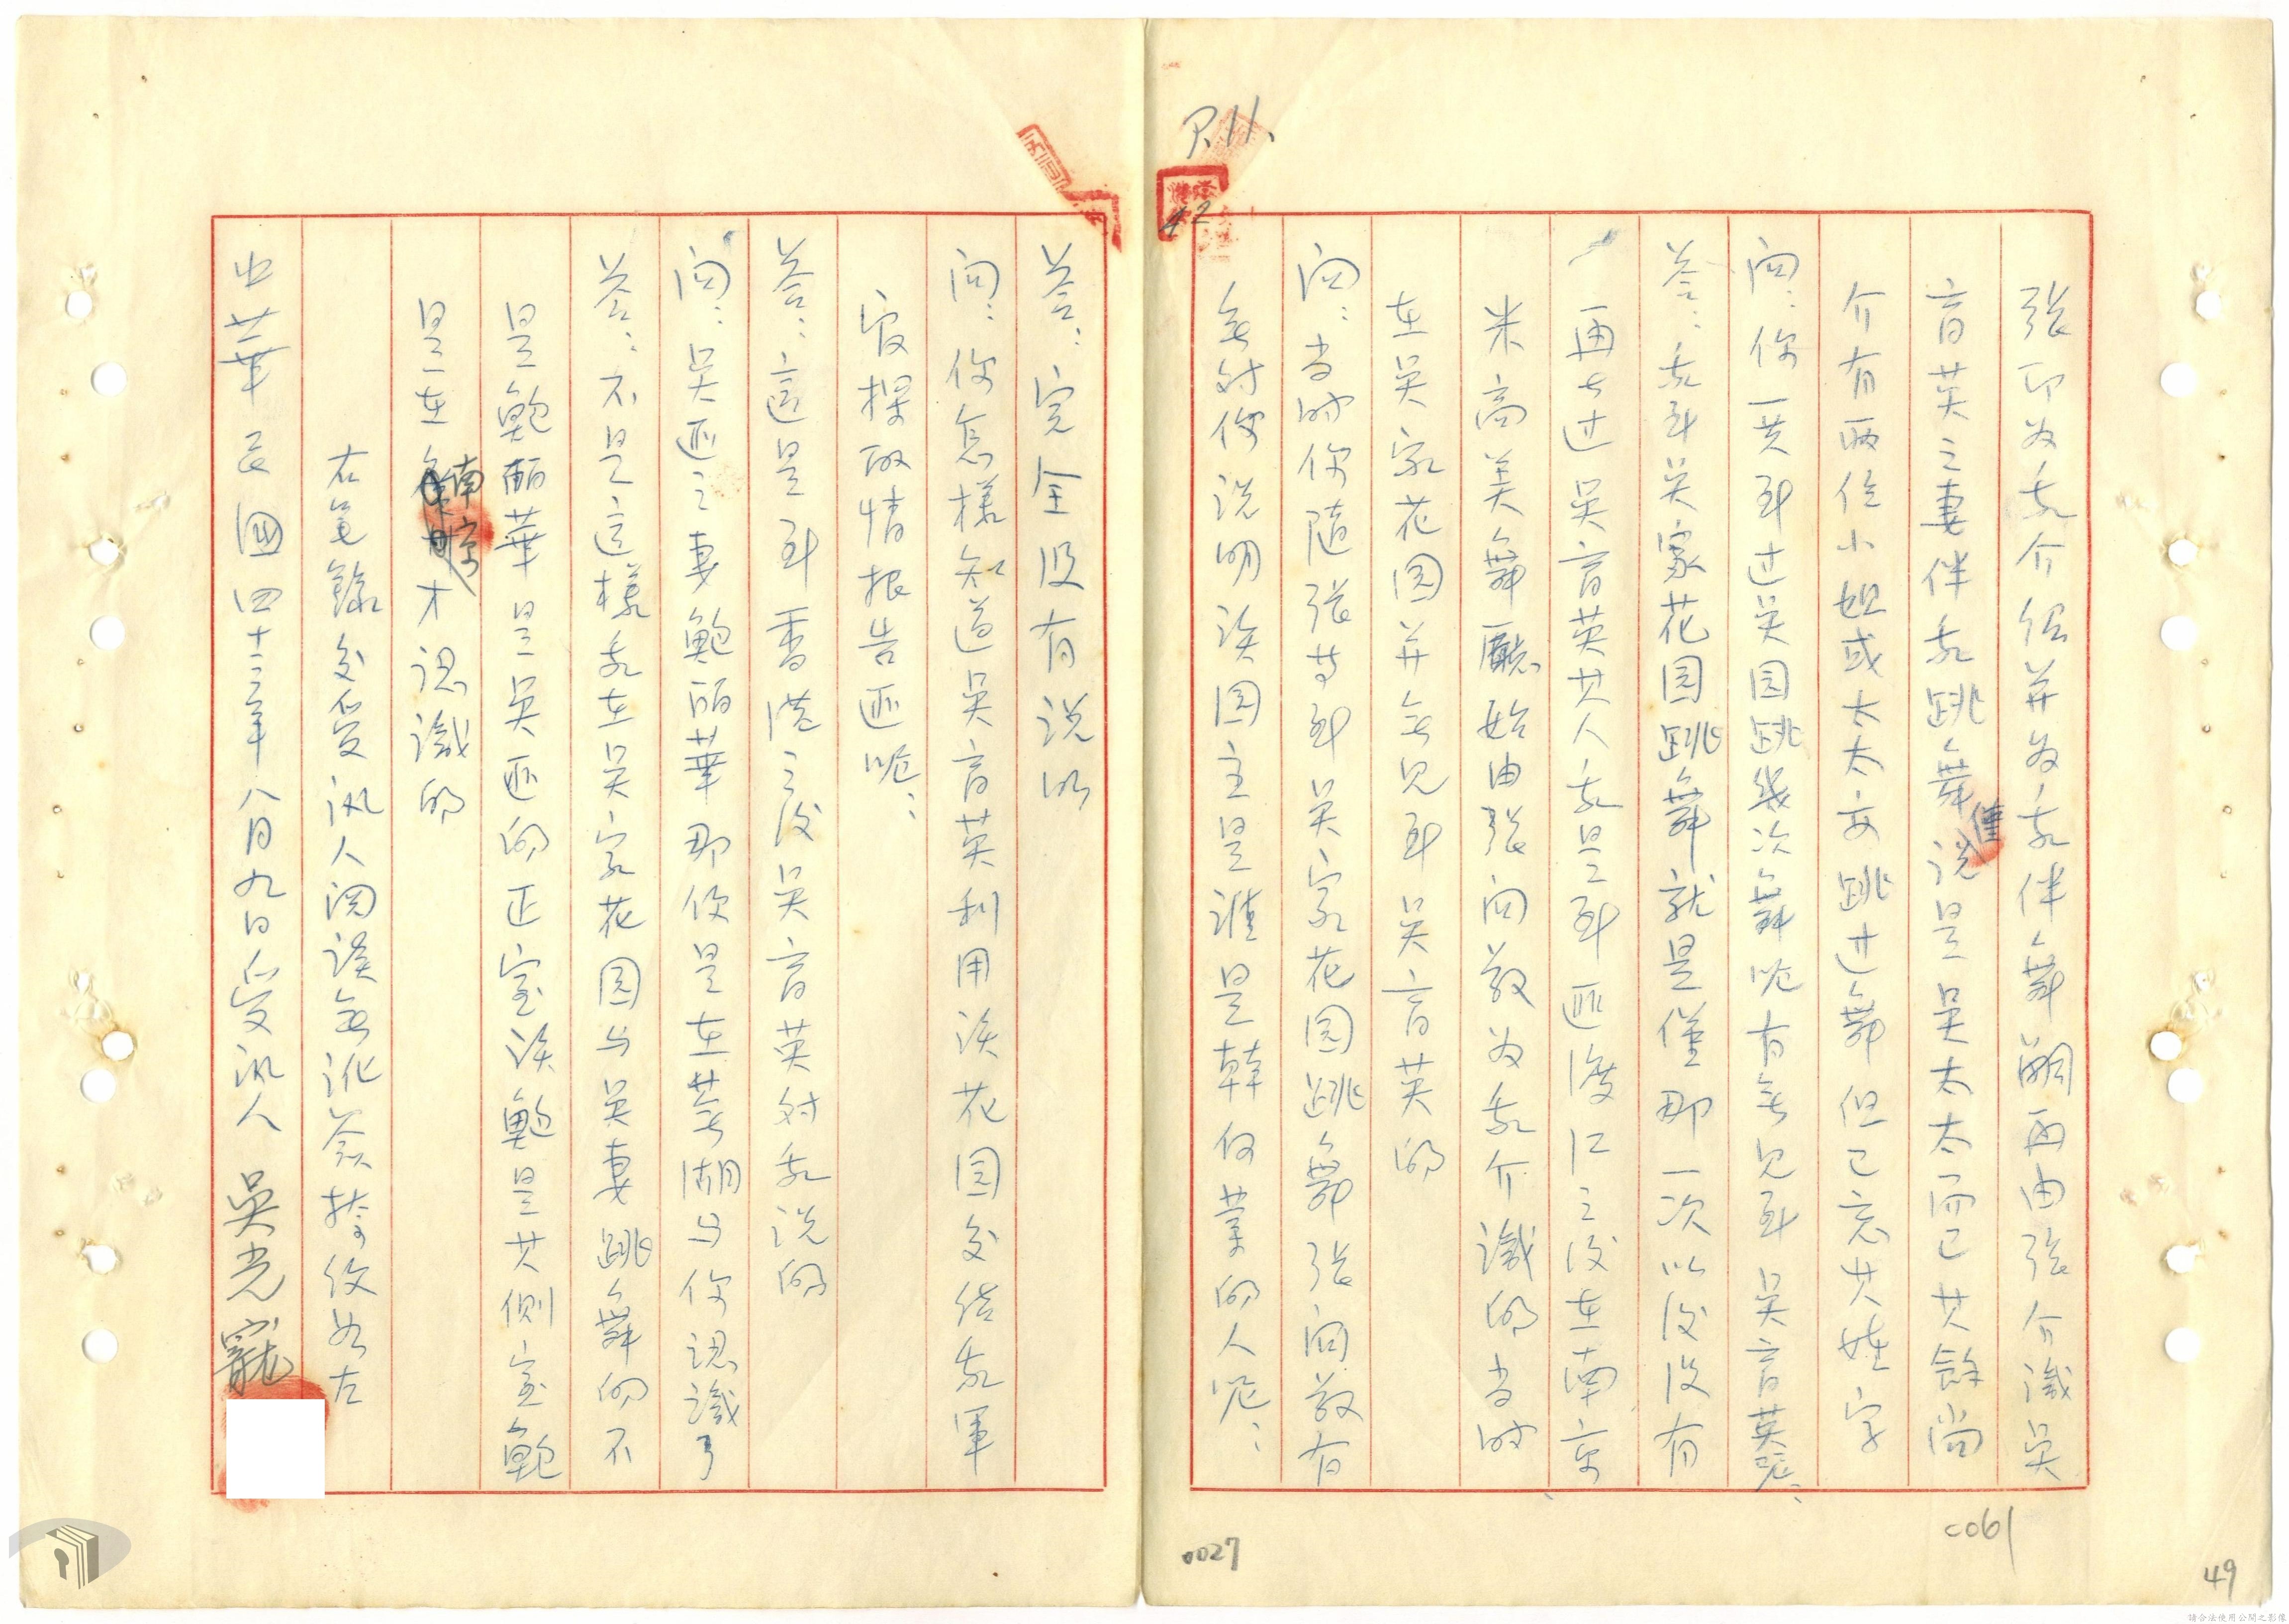 P.11.
42
張即为我介紹并为我伴舞嗣再由張介識吳
育英之妻伴我跳舞僅說是吳太太而已其餘尚
介有兩位小姐或太太亦跳过舞但已忘其姓字
问：你一共到过吳园跳幾次舞呢有無見到吳育英呢：
答：我到吳家花园跳舞就是僅那一次以後沒有
再去过吳育英其人我是到匪渡江之後在南京
米高美舞廳始由張同敬为我介識的当时
在吳家花园并無見到吳育英的
问：当时你隨張等到吳家花园跳舞張同敬有
無对你說明該园主是誰是幹何業的人呢：
0027
c061
49
答：完全沒有說明
问：你怎樣知道吳育英利用該花园交結我軍
官探取情报告匪呢：
答：這是到香港之後吳育英对我說的
问：吳匪之妻鮑丽華那你是在蕪湖与你認識了
答：不是这樣我在吳家花园与吳妻跳舞的不
是鮑丽華是吳匪的正室該鮑是其側室鮑
是在南京才認識的
右笔錄交受訊人閱誤無訛簽押後如左
中華民國四十三年八月九日受訊人 吳光寵
請合法使用公開之影像